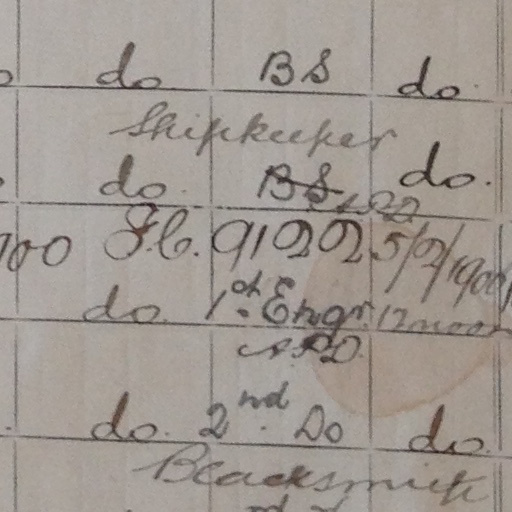 do BS do
Shipkeeper
do BS do.
100 F.C. 9102 2.5/2/1900
do 1st Engr. 12 noon
A.P.D.
do. 2nd. Do do
Blacksmith